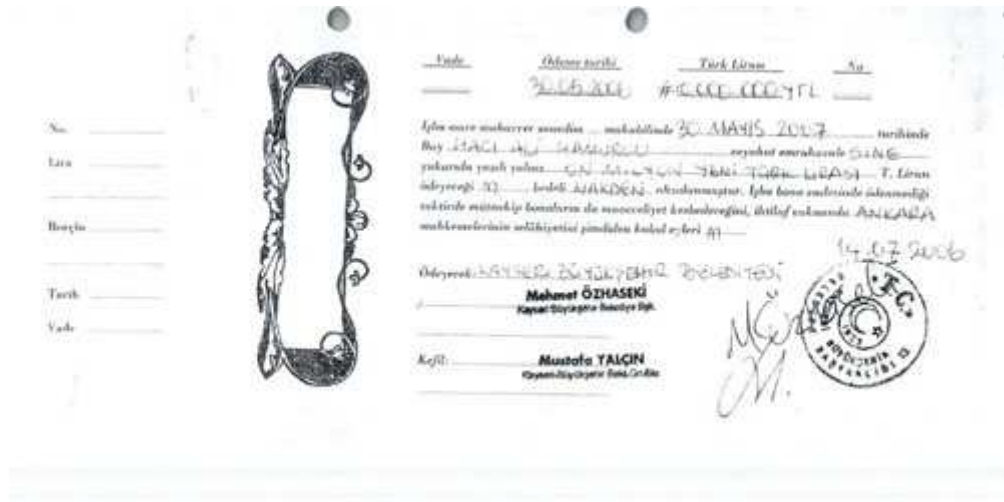 No.
Lira
Borçlu
Tarih
Vade
Vade Ödeme tarihi Türk Lirası No
# 10.000.000 YTL
İşbu emre muharrer senedim ... mukabilinde 30 MAYIS 2007 tarihinde
Bay HACI ALİ HAMURCU veyahut emruhavale SİNE
yukarıda yazılı yalnız ON MİLYON YENİ TÜRK LİRASI T. Lirası
ödeyeceğ bedeli NAKDEN ahzolunmuştur. İşbu bono vadesinde ödenmediği
takdirde müteakip bonoların da muacceliyet kesbedeceğini, ihtilaf vukuunda ANKARA
mahkemelerinin selâhiyetini şimdiden kabul eyleri
14.07.2006
Ödeyecek: KAYSERİ BÜYÜKŞEHİR BELEDİYESİ
Mehmet ÖZHASEKİ
Kayseri Büyükşehir Belediye Bşk.
Kefil: Mustafa YALÇIN
Kayseri Büyükşehir
T.C.